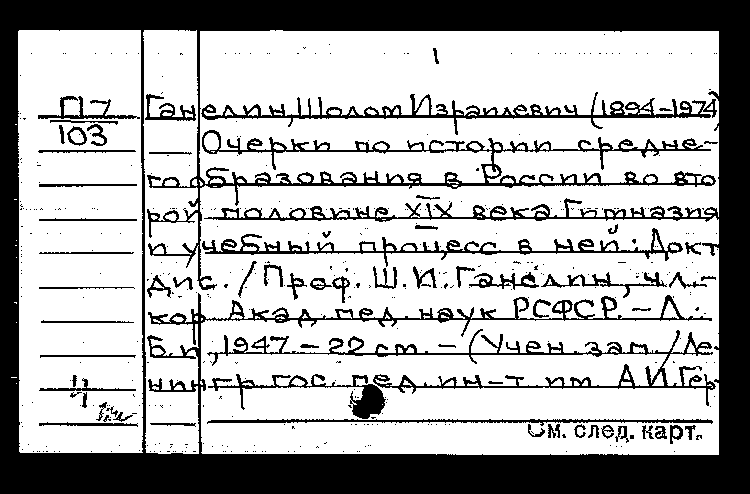 1
П7
103
Ганелин, Шолом Израилевич (1894-1974)
Очерки по истории средне-
го образования в России во вто
рой половине XIX века. Гимназия
и учебный процесс в ней: Докт
дис. / Проф. Ш. И. Ганелин, чл.-
кор Акад. пед. наук РСФСР. – Л.:
Б.и, 1947 – 22 ст. – (Учен. зап. / Ле-
нингр гос. пед. ин-т им А.И. Гер-
См. след. карт.